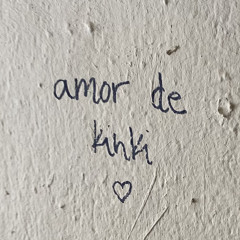 amor de
kinki
♡